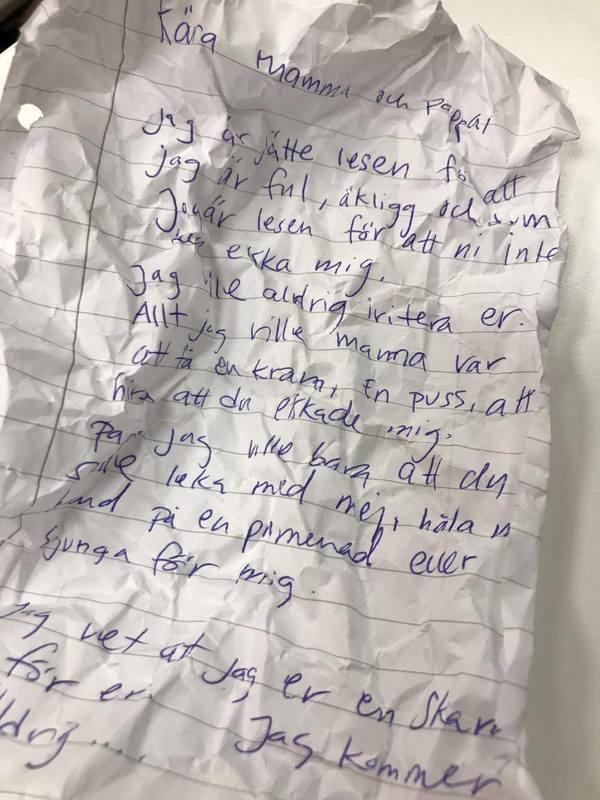 Kära mamma och pappa!
Jag är jätte lesen fö att
jag är ful, äkligg och som
är lesen för att ni inte
elska mig.
Jag ville aldrig iritera er.
Allt jag ville mamma var
att få en kram, En puss, att
höra att du elskade mig.
Pap Jag ville bara att du
leka med mej, håla
hand på en primenad eller
sjunga för mig.
Jag vet at Jag er en Skam
för er. Jag kommer
aldrig.....